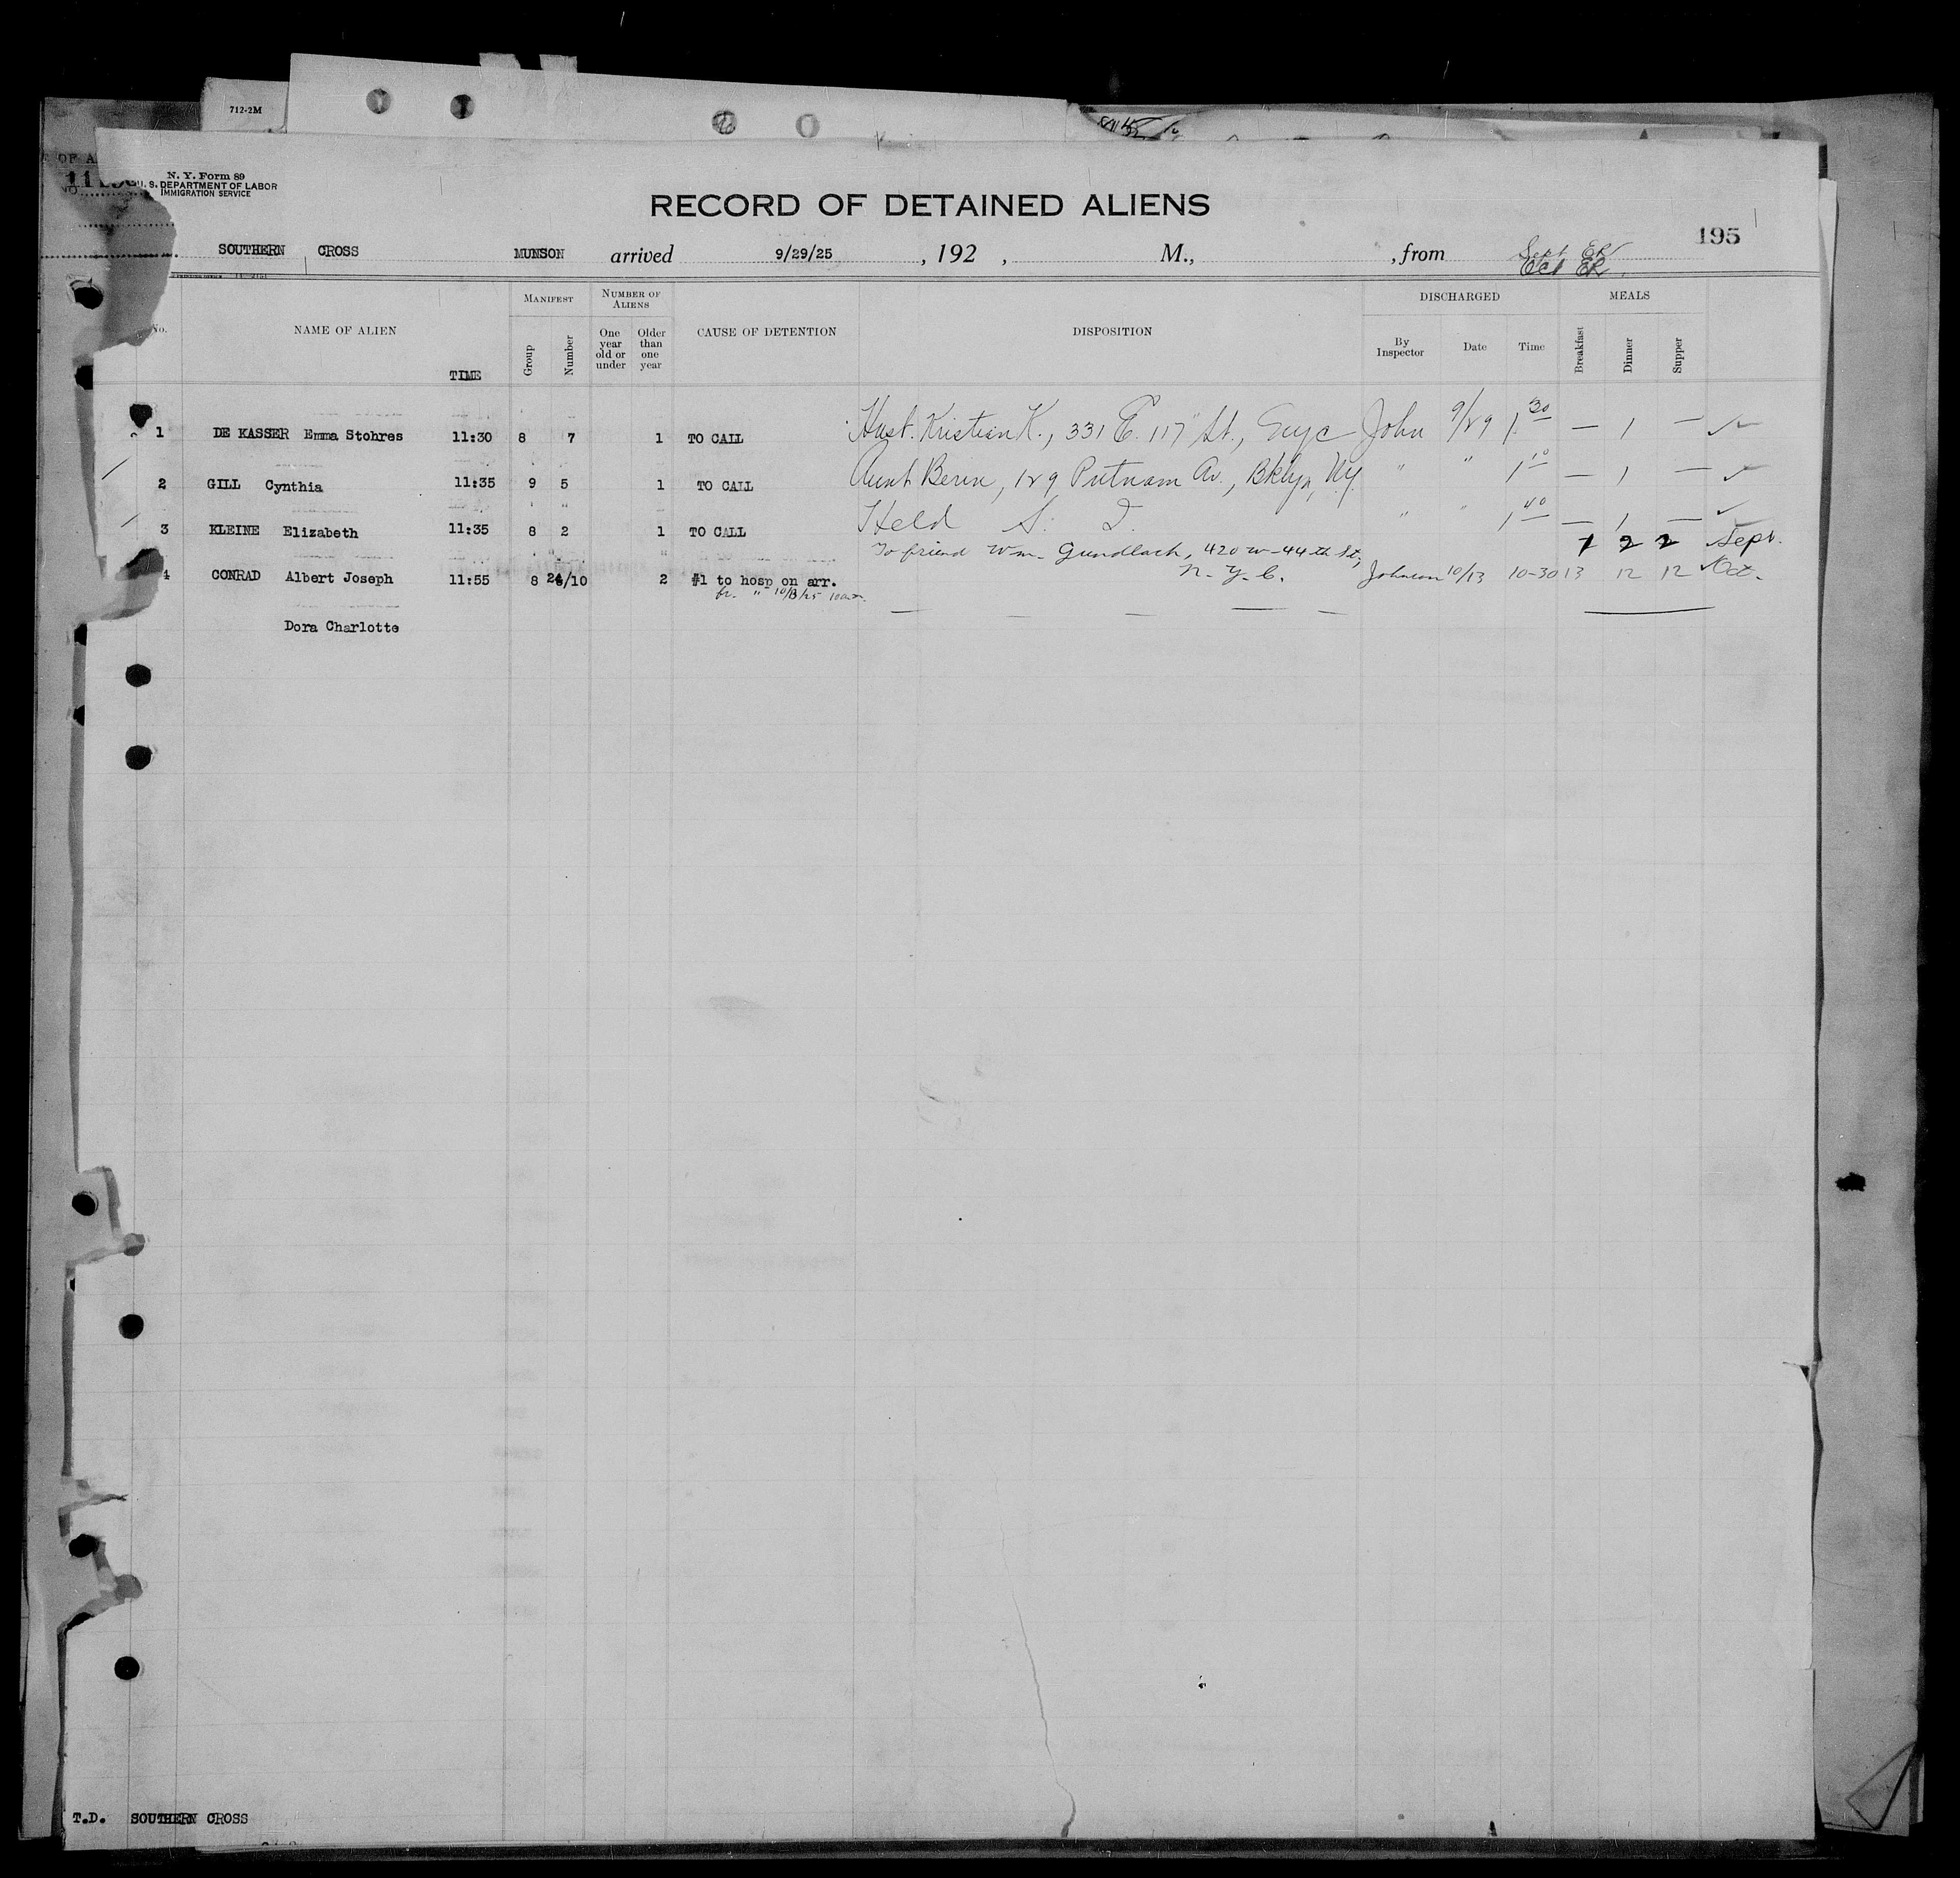 712-2M
OF A
N. Y. Form 89
U. S. DEPARTMENT OF LABOR
IMMIGRATION SERVICE
RECORD OF DETAINED ALIENS
195
SOUTHERN CROSS MUNSON arrived 9/29/25 , 192 , M., , from Sept ER
Oct ER
No. NAME OF ALIEN TIME MANIFEST Group Number NUMBER OF ALIENS One year old or under Older than one year CAUSE OF DETENTION DISPOSITION DISCHARGED By Inspector Date Time MEALS Breakfast Dinner Supper
1 DE KASSER Emma Stohres 11:30 8 7 1 TO CALL Husb. Kristian K., 331 E. 117" St., John 9/29 1 30 — 1 — ✓
2 GILL Cynthia 11:35 9 5 1 TO CALL Aunt 129 Putnam Av., Bklyn, NY. " " 1 10 — 1 — ✓
3 KLEINE Elizabeth 11:35 8 2 1 TO CALL Held S. I. " " 1 40 — 1 — ✓
To friend Wm. Gundlach, 420 W-44th St, 2 2 Sept.
4 CONRAD Albert Joseph 11:55 8 /10 2 #1 to hosp on arr. N.Y.C. Johnson 10/13 10-30 13 12 12 Oct.
fr. " 10/3/25 10am.
Dora Charlotte
T.D. SOUTHERN CROSS